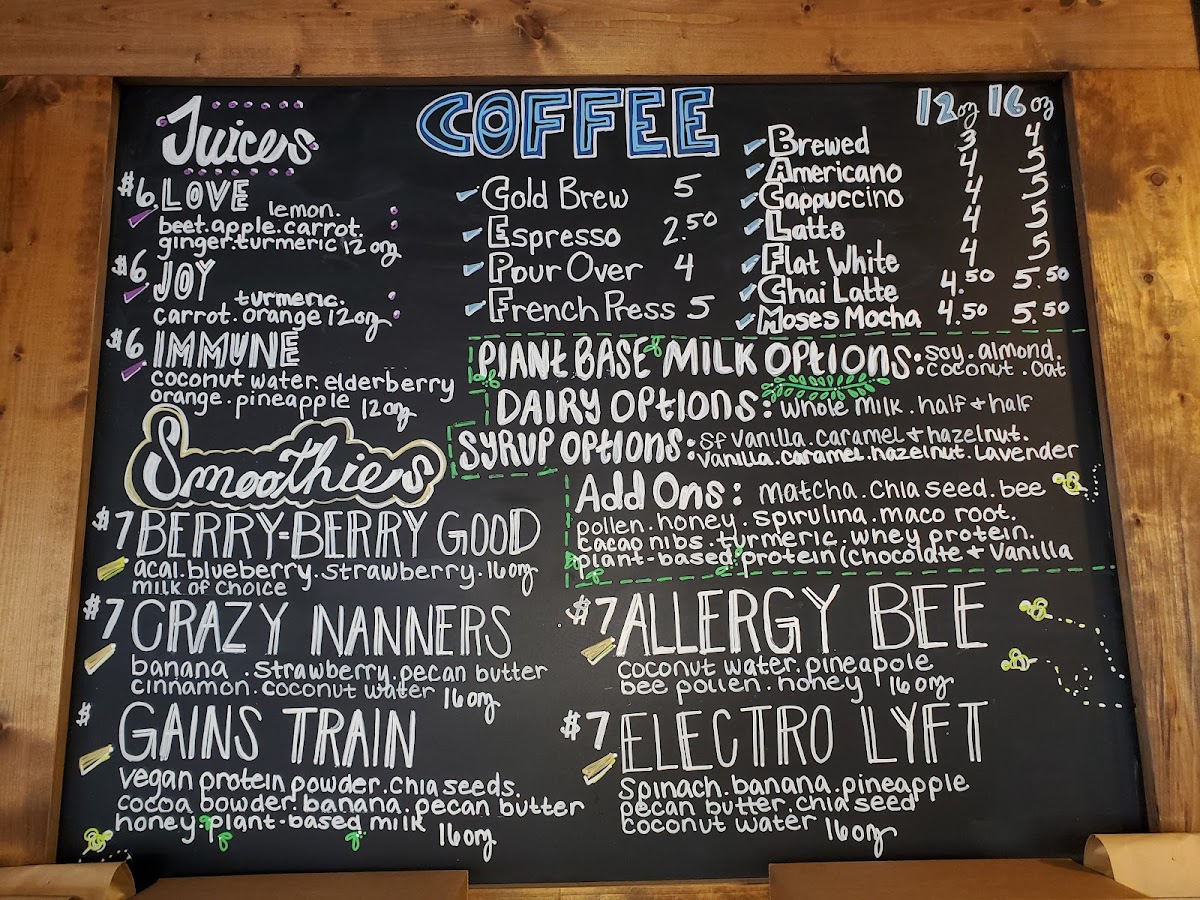 Juices
#6 LOVE lemon.
beet.apple.carrot.
ginger.turmeric 12 oz
$6 JOY turmeric.
carrot.orange 12oz
$6 IMMUNE
coconut water.elderberry
orange.pineapple 12 oz
Smoothies
$7 BERRY-BERRY GOOD
acai.blueberry.strawberry.16oz
milk of choice
$7 CRAZY NANNERS
banana .strawberry.pecan butter
cinnamon.coconut water 16oz
$ GAINS TRAIN
vegan protein powder.chia seeds.
cocoa powder.banana.pecan butter
honey.plant-based milk 16oz
COFFEE
Cold Brew 5
Espresso 2.50
Pour Over 4
French Press 5
12oz 16oz
Brewed 3 4
Americano 4 5
Cappuccino 4 5
Latte 4 5
Flat White 4 5
Chai Latte 4.50 5.50
Moses Mocha 4.50 5.50
PLANT BASE MILK OPTIONS: soy.almond.
coconut.oat
DAIRY OPTIONS: whole milk.half + half
SYRUP OPTIONS: SF vanilla.caramel + hazelnut.
vanilla.caramel.hazelnut.lavender
Add Ons: matcha.chia seed.bee
pollen.honey.spirulina.maco root.
cacao nibs.turmeric.whey protein.
plant-based protein (chocolate + vanilla
$7 ALLERGY BEE
coconut water.pineapole
bee pollen.honey 16oz
$7 ELECTRO LYFT
spinach.banana.pineapple
pecan butter.chia seed
coconut water 16oz